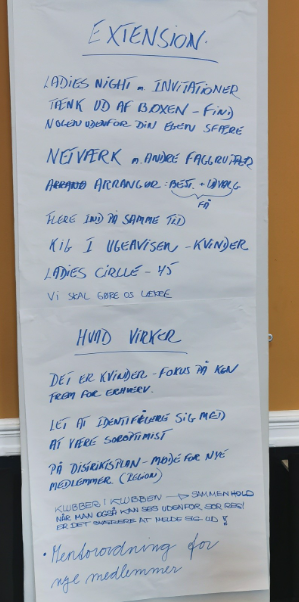 EXTENSION.
LADIES NIGHT m. INVITATIONER
TÆNK UD AF BOXEN - FIND
NOGEN UDENFOR DIN EGEN SFÆRE
NETVÆRK m ANDRE FAGGRUPPER
ARRANGØR: BEST. +
FÅ
FLERE IND PÅ SAMME TID
KIG I UGEAVISEN - KVINDER
LADIES CIRCLE - 45
VI SKAL GØRE OS LÆKRE
HVAD VIRKER
DET ER KVINDER - FOKUS PÅ KØN
FREM FOR ERHVERV.
LET AT IDENTIFICERE SIG MED
AT VÆRE SOROPTIMIST
PÅ DISTRIKTSPLAN - MØDE FOR NYE
MEDLEMMER (REGION)
KLUBBER I KLUBBEN → SAMMENHOLD
NÅR MAN OGSÅ KAN SES UDENFOR SOR REGI
ER DET SVÆRERE AT MELDE SIG UD!
• Mentorordning for
nye medlemmer